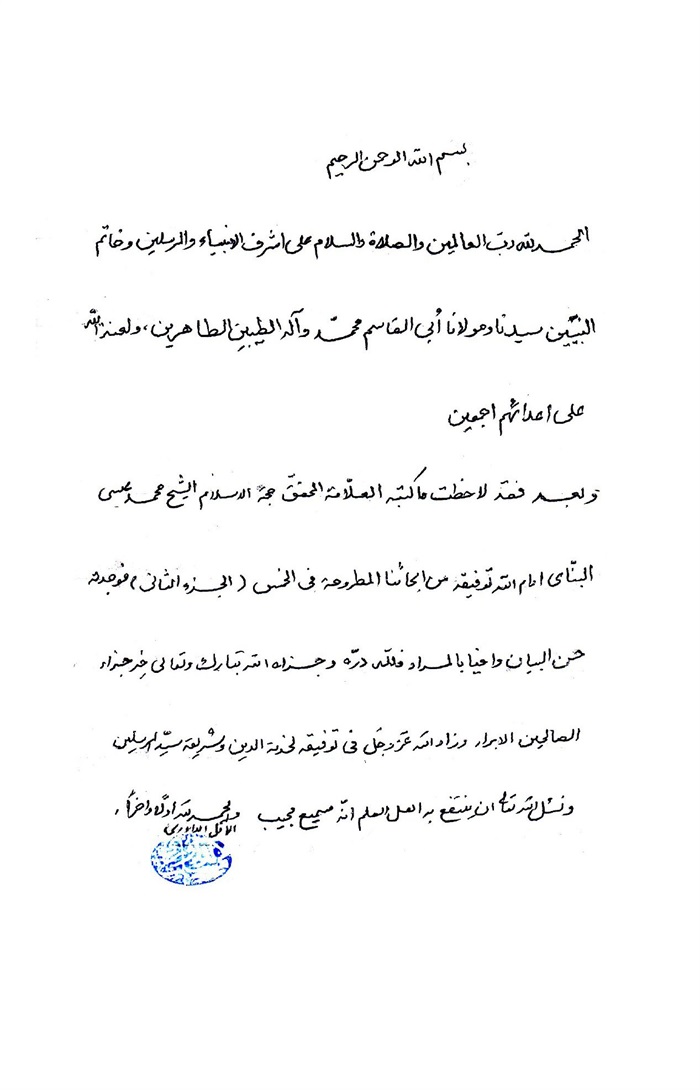 بسم الله الرحمن الرحيم
الحمد لله رب العالمين والصلاة والسلام على اشرف الانبياء والمرسلين وخاتم
النبيّين سيدنا ومولانا أبي القاسم محمّد وآله الطيبين الطاهرين، ولعنة الله
على اعدائهم اجمعين
وبعد فقد لاحظت ما كتبه العلّامة المحققّ حجة الاسلام الشيخ محمد عيسى
البنّاى ادام الله توفيقه من ابحاثنا المطروحة فى الخمس (الجزء الثانى) فوجدته
حسن البيان وافيا بالمراد فلله درّه وجزاه الله تبارك وتعالى خير جزاء
الصالحين الابرار وزاد الله عزّ وجلّ فى توفيقه لخدمة الدين وشريعة سيّد المرسلين
ونسئل الله تعالى ان ينتفع به اهل العلم انّه سميع مجيب والحمد لله اولًا واخرًا،
الاقل